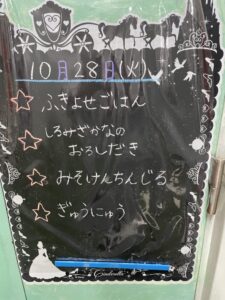 10月28日(火)
☆ ふきよせごはん
☆ しろみざかなの
おろしだき
☆ みそけんちんじる
☆ ぎゅうにゅう
Cinderella